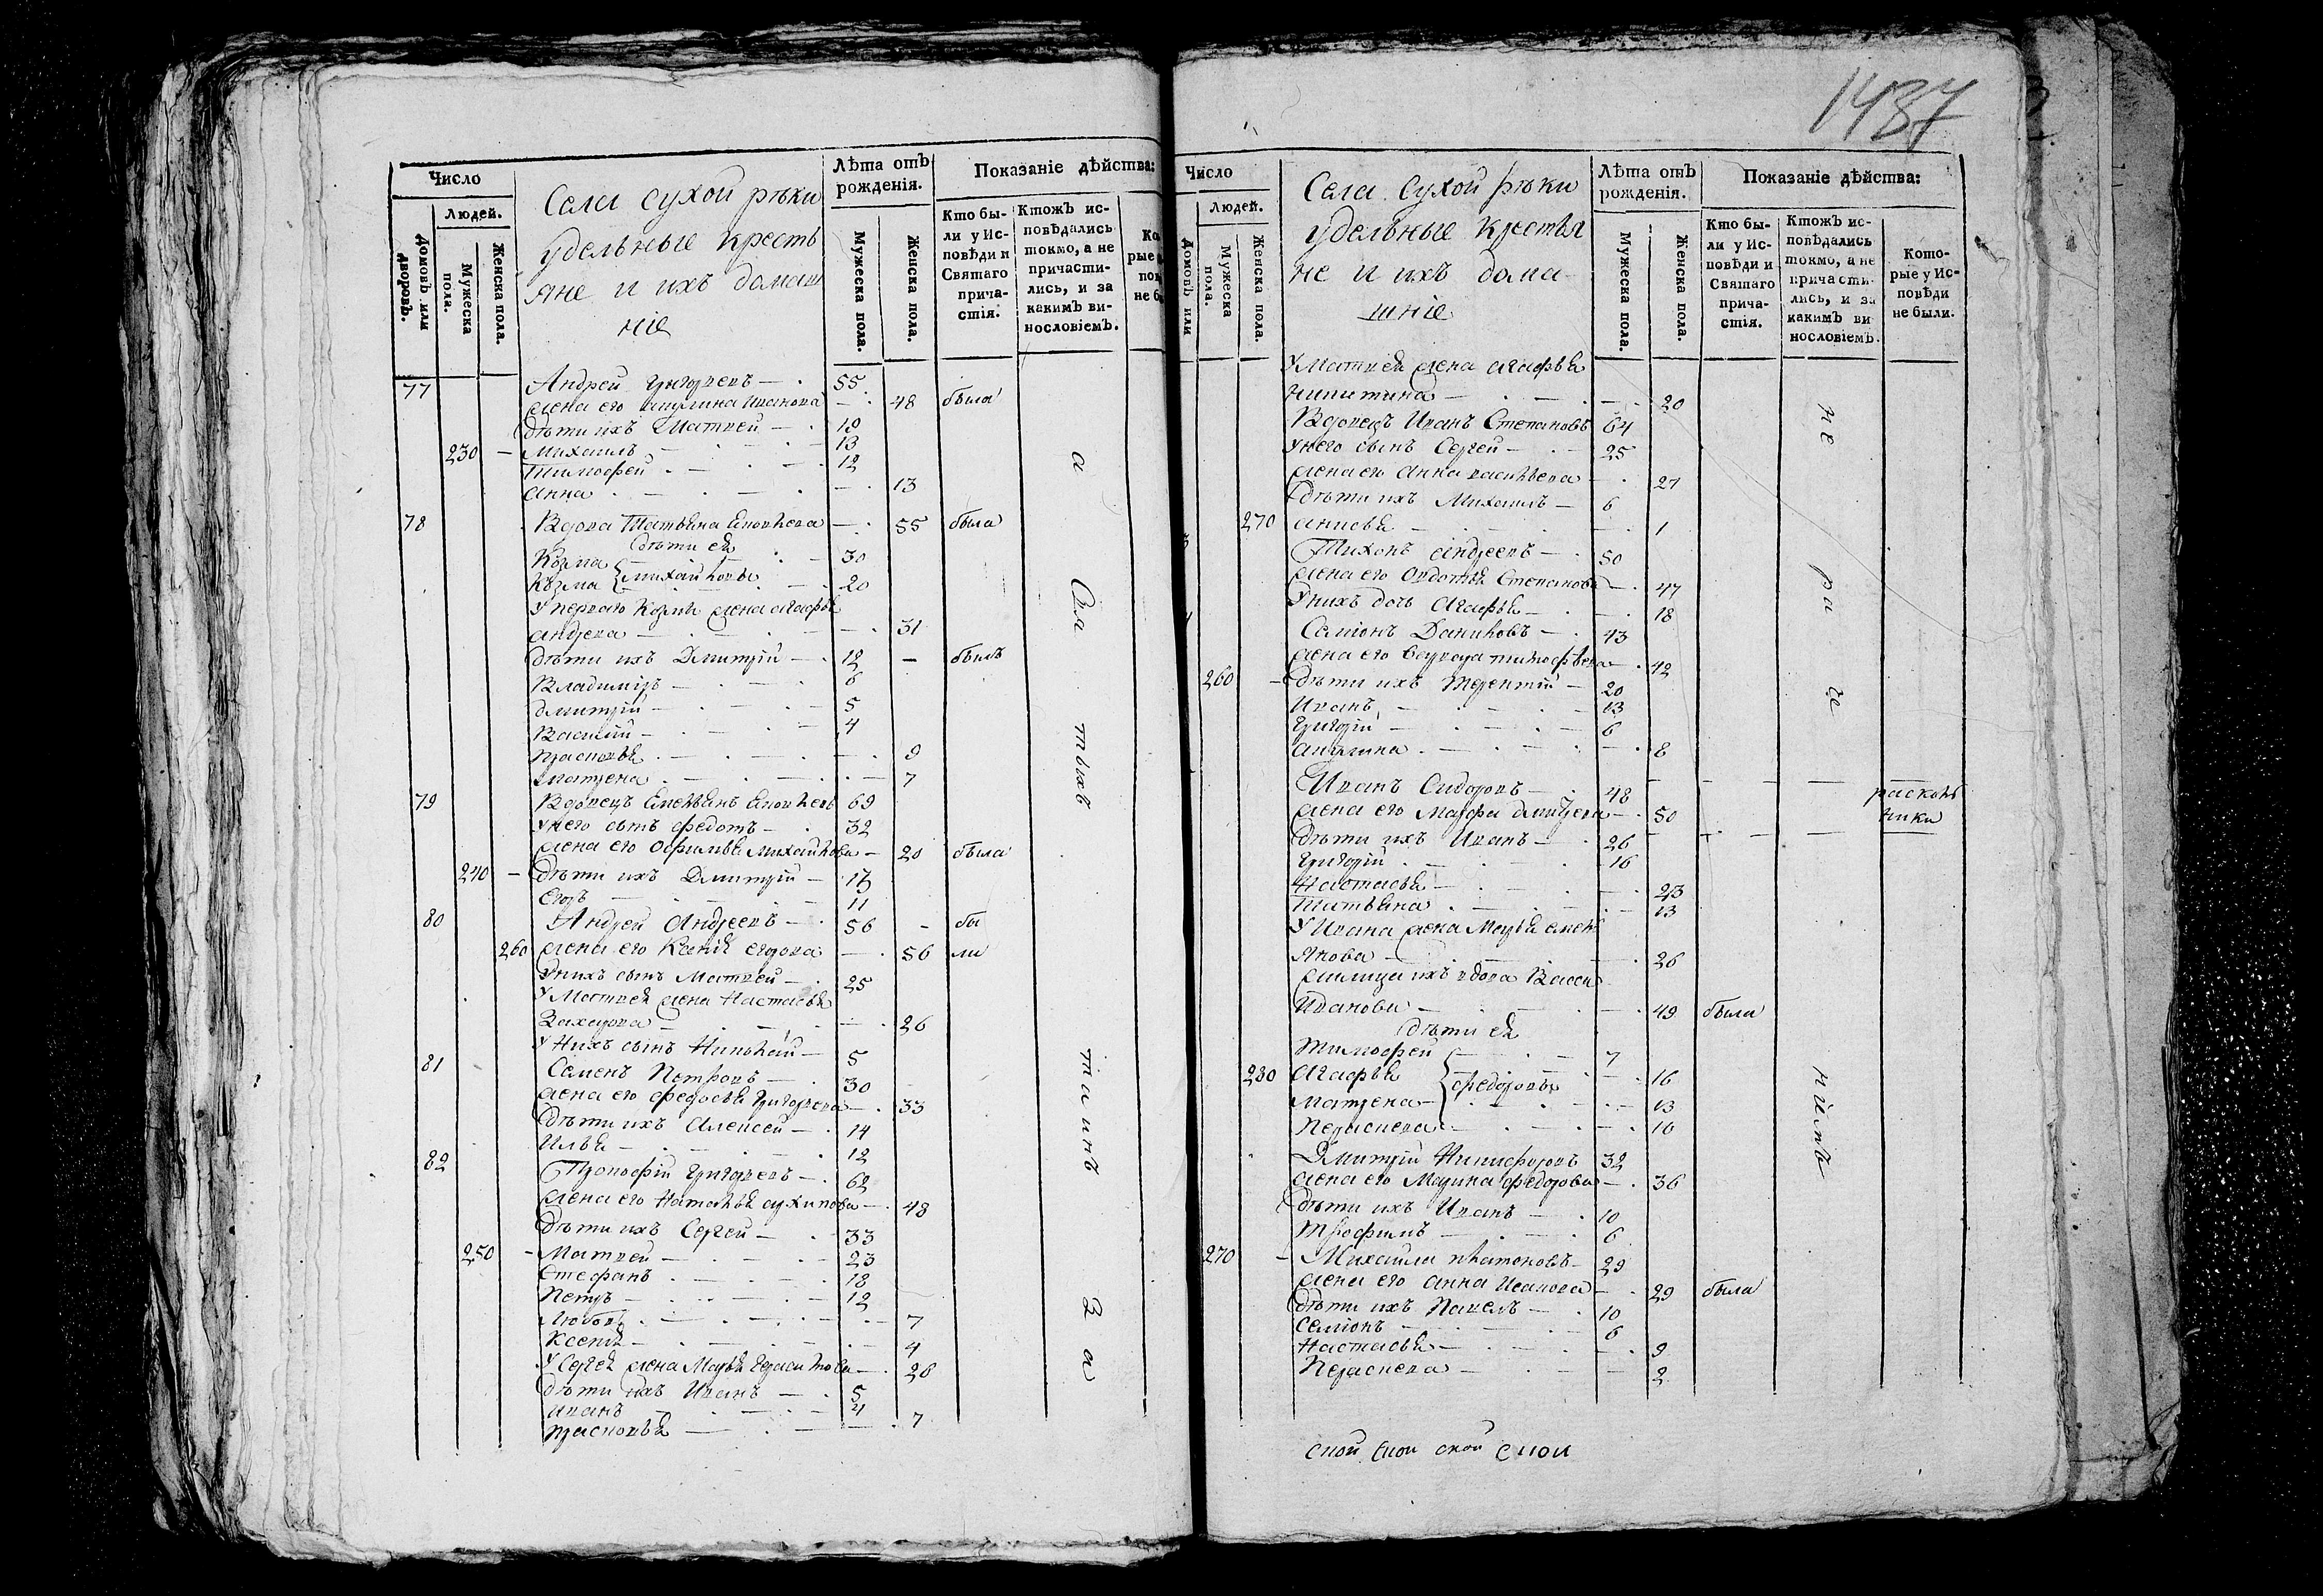 1437
Число
Людей.
Домовъ или дворовъ.
Мужеска пола.
Женска пола.
Села сухой рѣки
удельные кресть
яне и ихъ домаш
ніе
Лѣта отъ рожденія.
Мужеска пола.
Женска пола.
Показаніе дѣйства:
Кто были у Исповѣди и Святаго причастія.
Ктожъ исповѣдались токмо, а не причастились, и за какимъ винословіемъ.
77 Андрей Григорьевъ — 55
жена его Акулина Иванова — 48 была
дѣти ихъ Матвей — 19
230 — Михаилъ — 13
Тимофей — 12
анна — 13
78 Вдова Татьяна — 55 была
дѣти ея
Козма — 30
Козма } михайловы — 20
У перваго Козмы жена агафья
андреева — 31
дѣти ихъ Дмитрій — 12 — былъ
Владимиръ — 6
дмитрій — 5
Василій — 4
прасковья — 9
матрена — 7
79 Вдовецъ Емельянъ 69
У него сынъ федотъ — 32
жена его Офимья Михайлова — 20 была
240 — дѣти ихъ Дмитрій — 13
Егоръ — 11
80 Андрей Андреевъ — 56 — бы
260 жена его Ксенія егорова — 56 ли
У нихъ сынъ Матвей — 25
У Матвея жена Настасья
Захарова — 26
У Нихъ сынъ Николай — 5
81 Семенъ Петровъ — 30
жена его федосья Григорьева — 33
дѣти ихъ Алексей — 14
Илья — 12
82 Прокофій Григорьевъ — 62
жена его Наталья архипова — 48
дѣти ихъ Сергей — 33
250 — Матвей — 23
Стефанъ — 18
Петръ — 12
Любовь — 7
Ксенія — 4
У Сергея жена Марья Герасимова — 28
дѣти ихъ Иванъ — 5
иванъ — 4
прасковья — 7
а
Свя
тыхъ
таинъ
За
Число
Людей.
Домовъ или
Мужеска пола.
Женска пола.
Села Сухой рѣки
удельные крестья
не и ихъ дома
шніе
Лѣта отъ рожденія.
Мужеска пола.
Женска пола.
Показаніе дѣйства:
Кто были у Исповѣди и Святаго причастія.
Ктожъ исповѣдались токмо, а не причастились, и за какимъ винословіемъ.
Которые у Исповѣди не были.
У Матвея жена агафья
Никитина — 20
Вдовецъ Иванъ Степановъ 64
У него сынъ Сергей — 25
жена его Анна васильева — 27
дѣти ихъ Михаилъ — 6
270 анисья — 1
Тихонъ андреевъ — 50
жена его Овдотья Степанова — 47
У нихъ дочь Агафья — 18
Семіонъ Даниловъ — 43
жена его Варвара тимофѣева — 42
260 — дѣти ихъ Терентій — 20
Иванъ — 13
Григорій — 6
акулина — 8
Иванъ Сидоровъ — 48 расколь
жена его Марфа дмитрева — 50 ники
дѣти ихъ Иванъ — 26
Григорій — 16
Настасья — 23
Татьяна — 13
У Ивана жена Марья емель
янова — 26
вдова Васса
Иванова — 49 была
дѣти ея
Тимофей — 7
280 агафья } федоровы — 16
матрена — 13
Пераскева — 10
Дмитрій Никифоровъ 32
жена его Марина федорова — 36
дѣти ихъ Иванъ — 10
Трофимъ — 6
270 — Михайла платоновъ — 29
жена его анна Исакова — 29 была
дѣти ихъ Павелъ — 10
Семіонъ — 6
Настасья — 9
Пераскева — 2
не
ра
че
ніемъ
ской ской ской ской